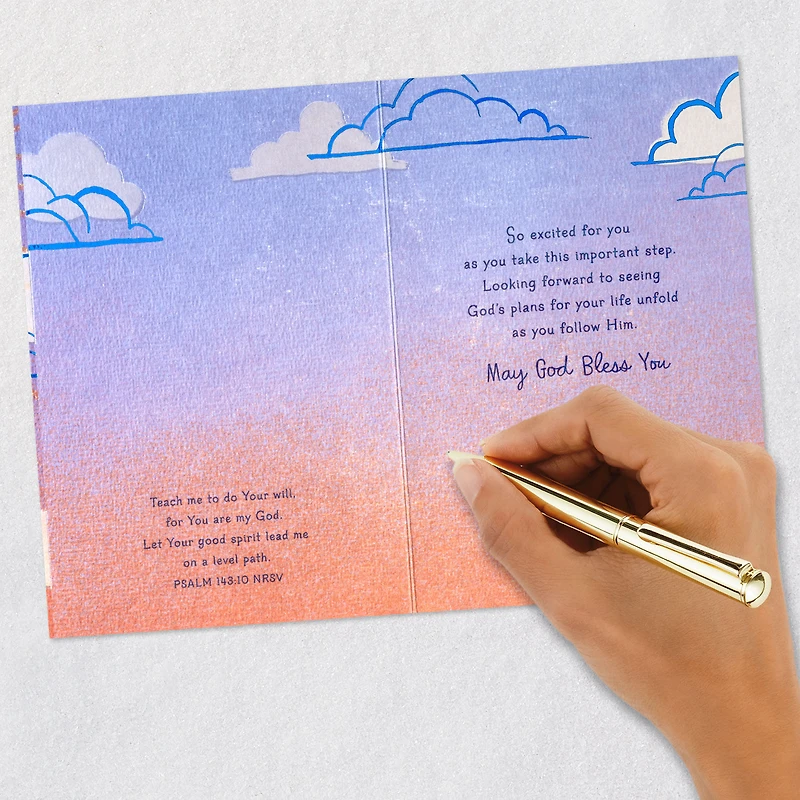 Teach me to do Your will,
for You are my God.
Let Your good spirit lead me
on a level path.
PSALM 143:10 NRSV
So excited for you
as you take this important step.
Looking forward to seeing
God's plans for your life unfold
as you follow Him.
May God Bless You